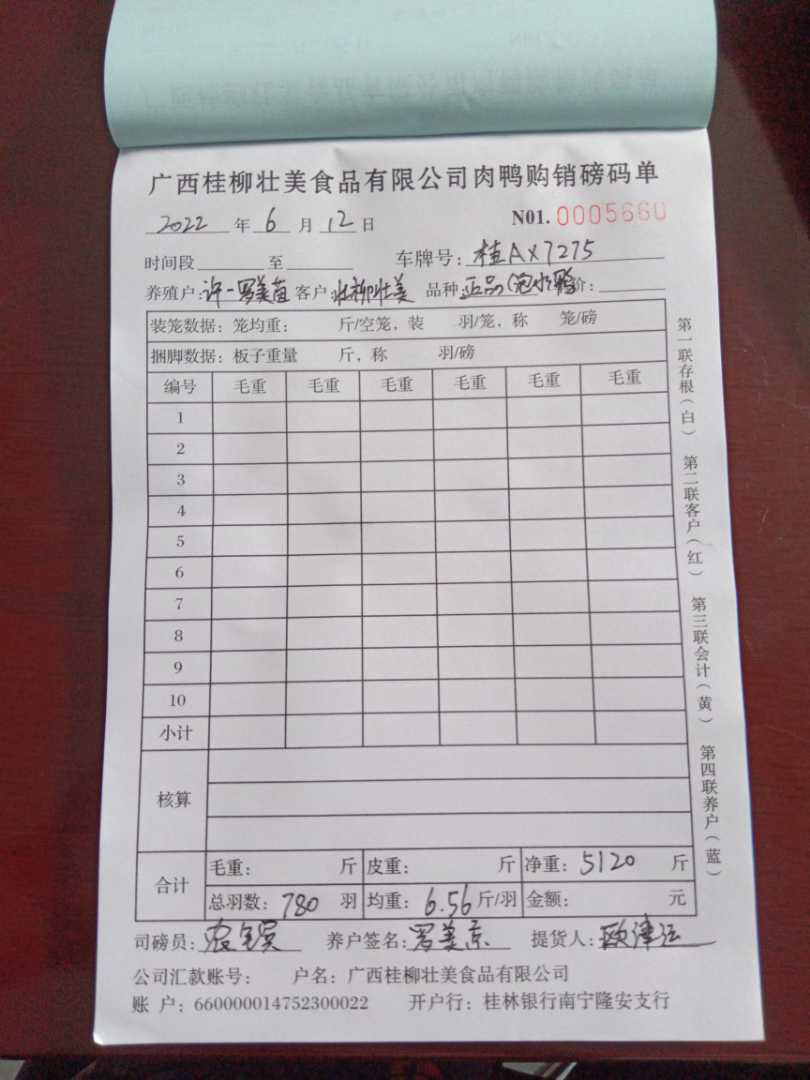 广西桂柳壮美食品有限公司肉鸭购销磅码单
2022 年 6 月 12 日 N01. 0005660
时间段 至 车牌号: 桂AX7275
养殖户: 许一罗美苗 客户: 壮柳壮美 品种: 正品(泡水鸭 价:
装笼数据: 笼均重: 斤/空笼, 装 羽/笼, 称 笼/磅
捆脚数据: 板子重量 斤, 称 羽/磅
编号 毛重 毛重 毛重 毛重 毛重 毛重
1
2
3
4
5
6
7
8
9
10
小计
核算
合计 毛重: 斤 皮重: 斤 净重: 5120 斤
总羽数: 780 羽 均重: 6.56 斤/羽 金额: 元
司磅员: 养户签名: 罗美 提货人: 欧津
公司汇款账号: 户名: 广西桂柳壮美食品有限公司
账 户: 660000014752300022 开户行: 桂林银行南宁隆安支行
第一联存根(白) 第二联客户(红) 第三联会计(黄) 第四联养户(蓝)